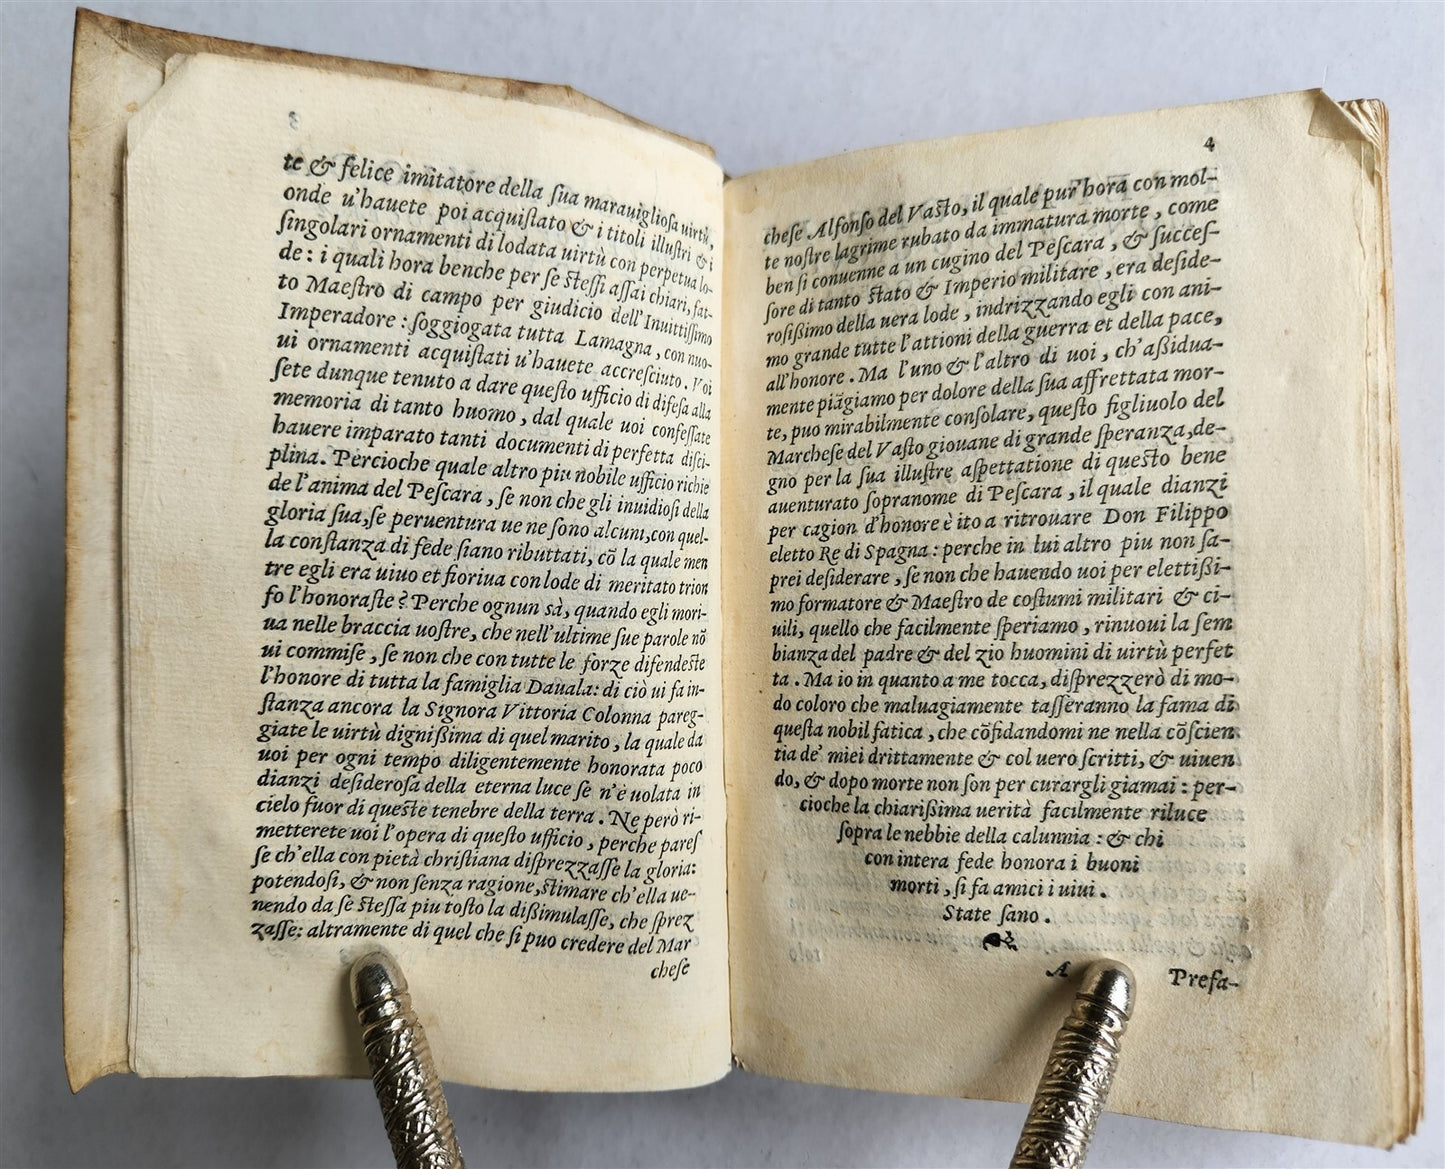 te & felice imitatore della sua marauigliosa uirtù,
onde u'hauete poi acquistato & i titoli illustri & i
singolari ornamenti di lodata uirtù con perpetua lo-
de: i quali hora benche per se stessi assai chiari, fat-
to Maestro di campo per giudicio dell'Inuittissimo
Imperadore: soggiogata tutta Lamagna, con nuo-
ui ornamenti acquistati u'hauete accresciuto. Voi
sete dunque tenuto a dare questo ufficio di difesa alla
memoria di tanto huomo, dal quale uoi confessate
hauere imparato tanti documenti di perfetta disci-
plina. Percioche quale altro piu nobile ufficio richie
de l'anima del Pescara, se non che gli inuidiosi della
gloria sua, se peruentura ue ne sono alcuni, con quel-
la constanza di fede siano ributtati, cõ la quale men
tre egli era uiuo et fioriua con lode di meritato trion
fo l'honoraste? Perche ognun sà, quando egli mori-
ua nelle braccia uostre, che nell'ultime sue parole nõ
ui commise, se non che con tutte le forze difendeste
l'honore di tutta la famiglia Dauala: di ciò ui fa in-
stanza ancora la Signora Vittoria Colonna pareg-
giate le uirtù dignißima di quel marito, la quale da
uoi per ogni tempo diligentemente honorata poco
dianzi desiderosa della eterna luce se n'è uolata in
cielo fuor di queste tenebre della terra. Ne però ri-
metterete uoi l'opera di questo ufficio, perche pares
se ch'ella con pietà christiana disprezzasse la gloria:
potendosi, & non senza ragione, stimare ch'ella ue-
nendo da se stessa piu tosto la dißimulasse, che sprez
zasse: altramente di quel che si puo credere del Mar
chese
4
chese Alfonso del Vasto, il quale pur hora con mol-
te nostre lagrime rubato da immatura morte, come
ben si conuenne a un cugino del Pescara, & succes-
sore di tanto stato & Imperio militare, era deside-
rosißimo della uera lode, indrizzando egli con ani-
mo grande tutte l'attioni della guerra et della pace,
all'honore. Ma l'uno & l'altro di uoi, ch'aßidua-
mente piãgiamo per dolore della sua affrettata mor-
te, puo mirabilmente consolare, questo figliuolo del
Marchese del Vasto giouane di grande speranza, de-
gno per la sua illustre aspettatione di questo bene
auenturato sopranome di Pescara, il quale dianzi
per cagion d'honore è ito a ritrouare Don Filippo
eletto Re di Spagna: perche in lui altro piu non sa-
prei desiderare, se non che hauendo uoi per elettißi-
mo formatore & Maestro de costumi militari & ci-
uili, quello che facilmente speriamo, rinuoui la sem
bianza del padre & del zio huomini di uirtù perfet
ta. Ma io in quanto a me tocca, disprezzerò di mo-
do coloro che maluagiamente tasseranno la fama di
questa nobil fatica, che cõfidandomi ne nella cõscien
tia de' miei drittamente & col uero scritti, & uiuen
do, & dopo morte non son per curargli giamai: per-
cioche la chiarißima uerità facilmente riluce
sopra le nebbie della calunnia: & chi
con intera fede honora i buoni
morti, si fa amici i uiui.
State sano.
A Prefa-